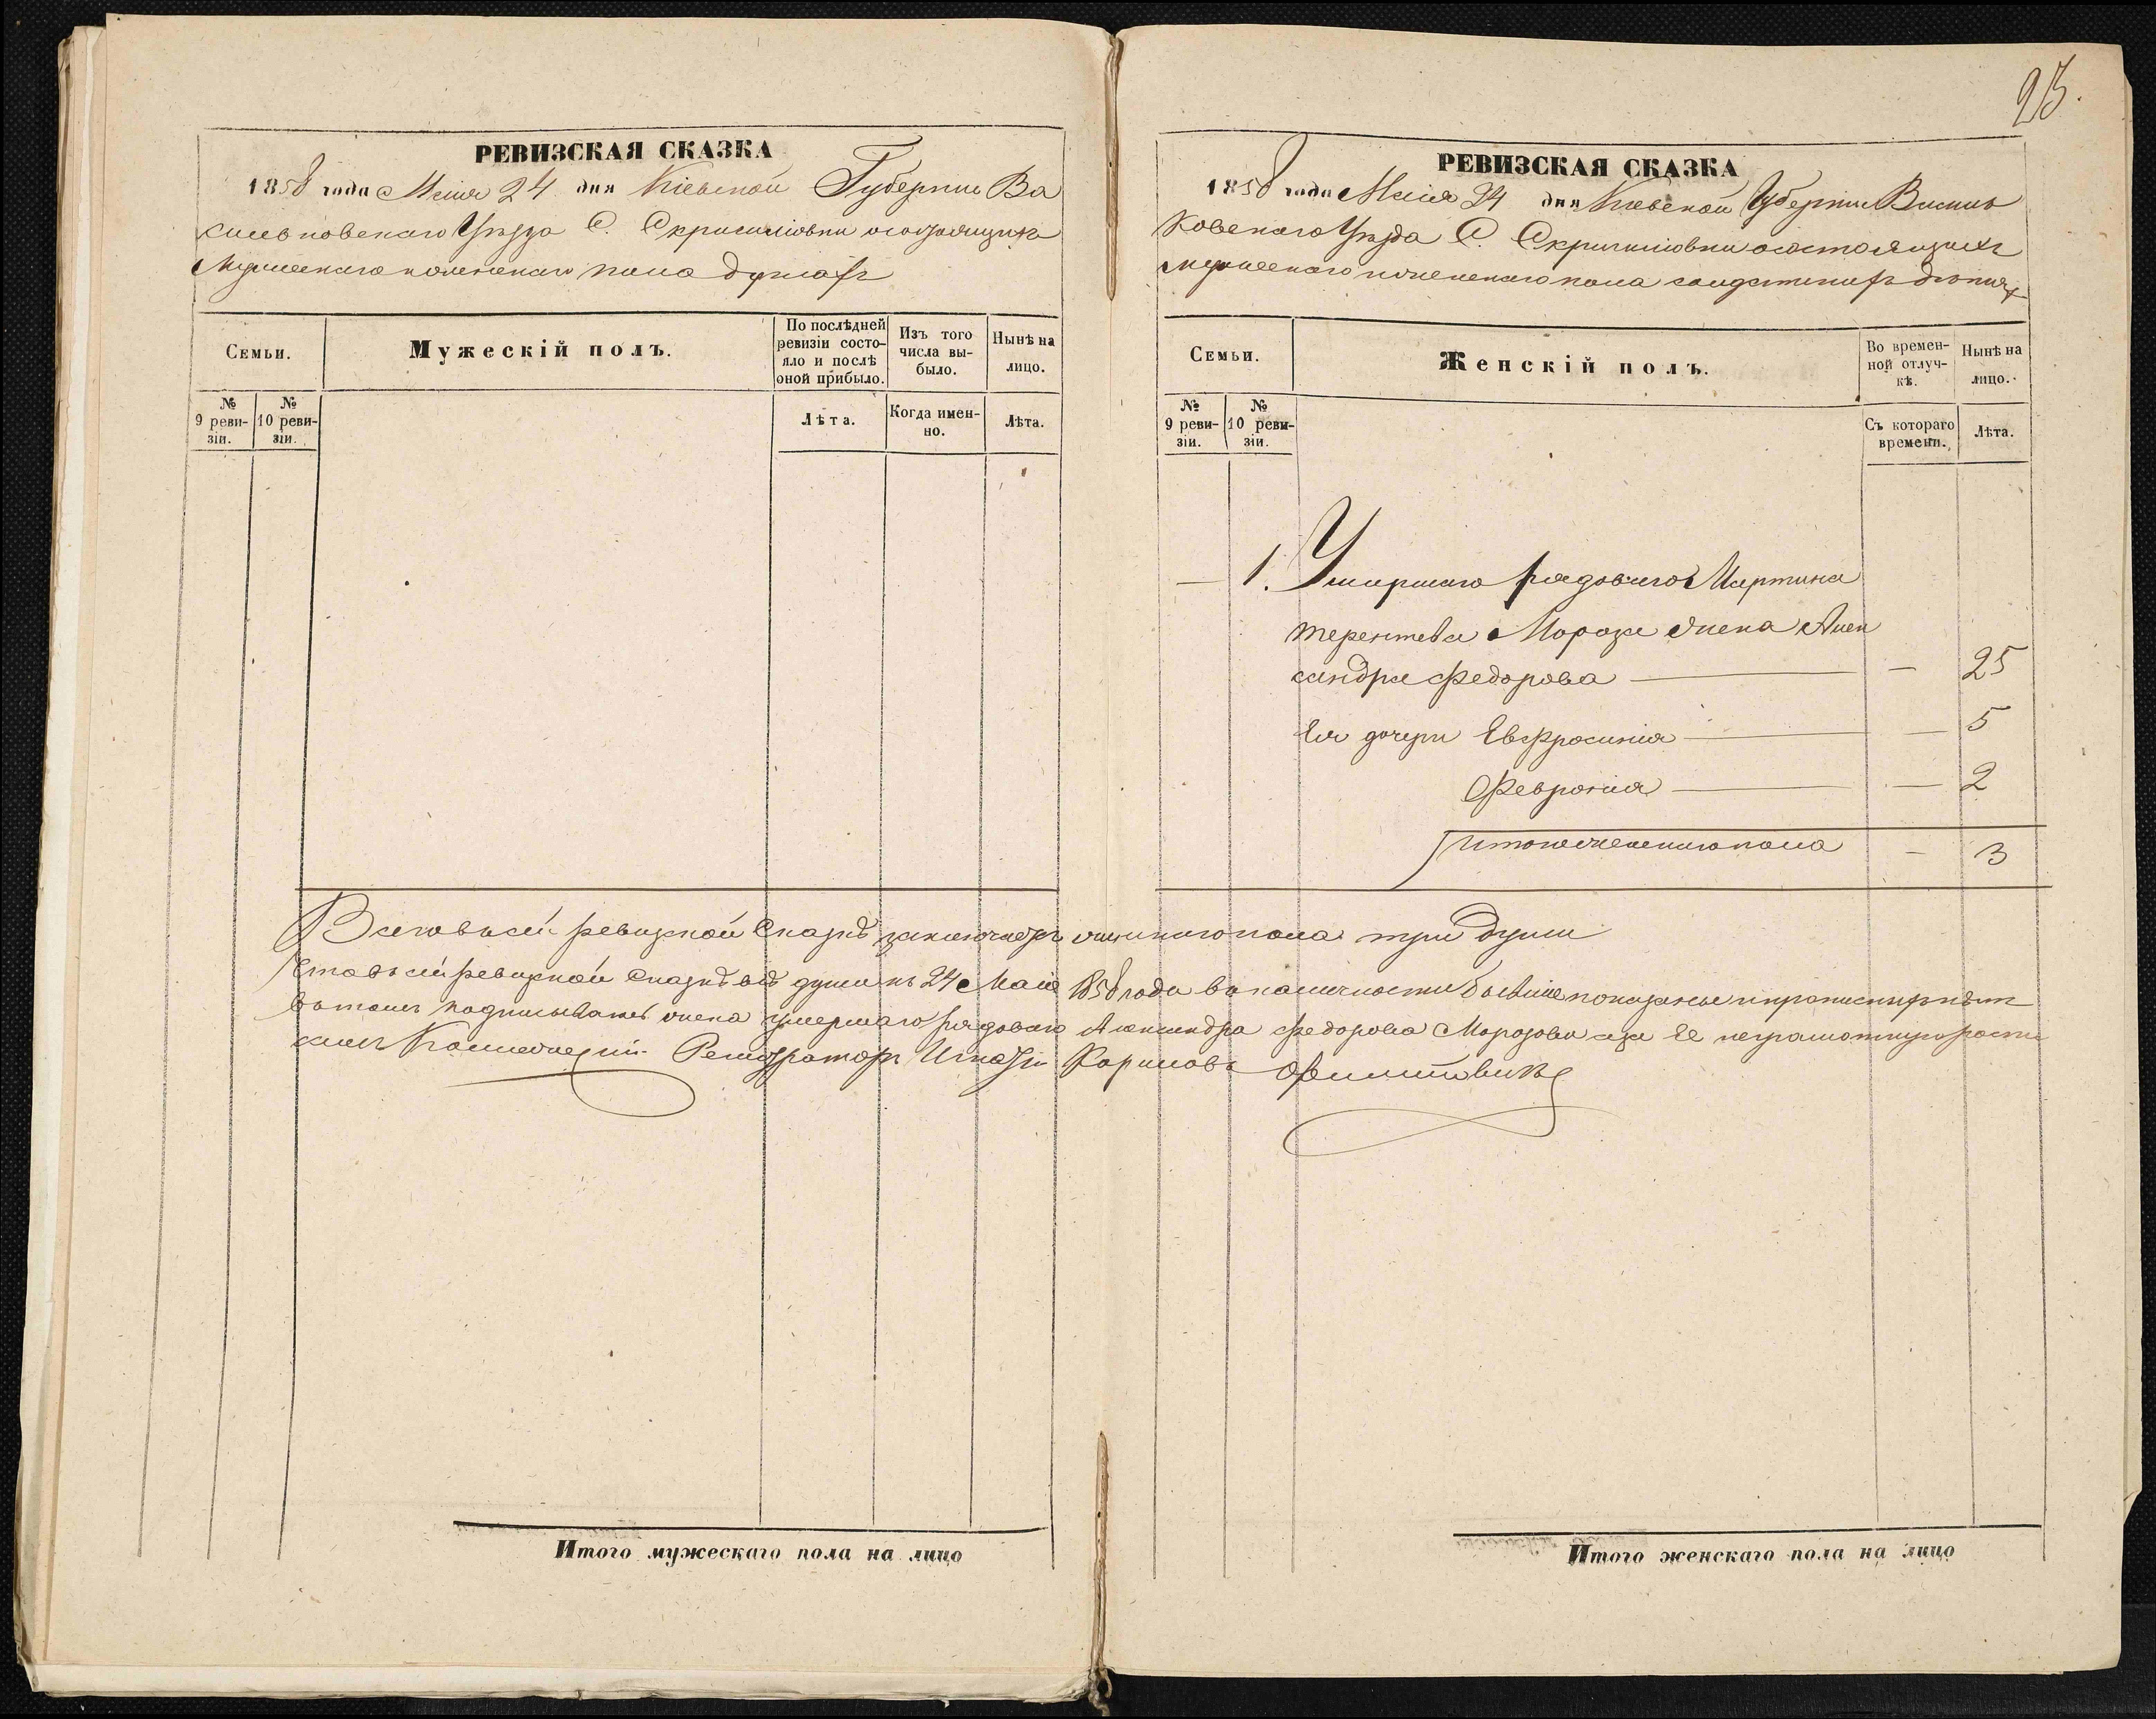 РЕВИЗСКАЯ СКАЗКА
1858 года Маія 24 дня Кіевской Губерніи Ва
сильковскаго Уѣзда С. Скригаліовки о состоящихъ
Мужескаго и женскаго пола душахъ
Семьи. Мужескій полъ. По послѣдней ревизіи состояло и послѣ оной прибыло. Изъ того числа выбыло. Нынѣ на лицо.
№ 9 ревизіи. № 10 ревизіи. Лѣта. Когда именно. Лѣта.
Итого мужескаго пола на лицо
25.
РЕВИЗСКАЯ СКАЗКА
1858 года Маія 24 дня Кіевской Губерніи Василь
ковскаго Уѣзда С. Скригаліовки о состоящихъ
мужескаго и женскаго пола солдатскихъ дѣтяхъ
Семьи. Женскій полъ. Во временной отлучкѣ. Нынѣ на лицо.
№ 9 ревизіи. № 10 ревизіи. Съ котораго времени. Лѣта.
— 1. Умиршаго рядоваго Мартина
Терентева Мороза жена Алек
сандра Федорова — — 25
Ея дочери Евфросинія — — 5
Февронія — — 2
Итого женскаго пола — 3
Всего в сей ревизкой Сказкѣ заключается женскаго пола три души
Что въ сей ревизкой Сказкѣ всѣ души къ 24 Маія 1858 года в наличности бывшие показаны и пропистныхъ нѣт
в томъ подписывапъ жена умершаго рядоваго Александра Федорова Морозова а за Ее неграмотную росписи
Коллежский Регистраторъ Игнатій Карповъ
Итого женскаго пола на лицо